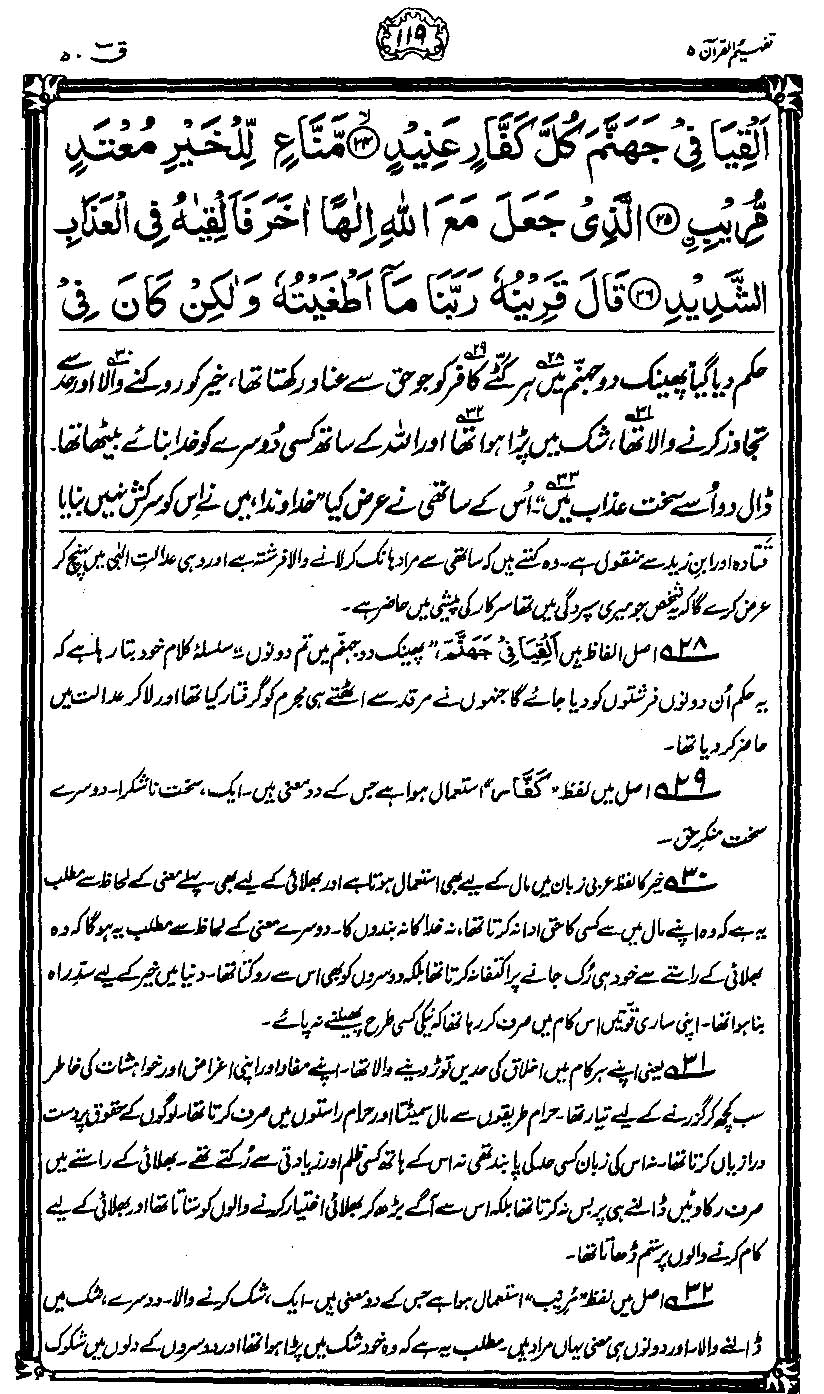 تفہیم القرآن ۵
۱۱۹
قٓ ۵۰
اَلْقِيَا فِيْ جَهَنَّمَ كُلَّ كَفَّارٍ عَنِيْدٍ ﴿۲۴﴾ مَّنَّاعٍ لِّلْخَيْرِ مُعْتَدٍ
مُّرِيْبِ ﴿۲۵﴾ الَّذِيْ جَعَلَ مَعَ اللّٰهِ اِلٰهًا اٰخَرَ فَاَلْقِيٰهُ فِي الْعَذَابِ
الشَّدِيْدِ ﴿۲۶﴾ قَالَ قَرِيْنُهٗ رَبَّنَا مَاۤ اَطْغَيْتُهٗ وَلٰكِنْ كَانَ فِيْ
حکم دیا گیا ”پھینک دو جہنّم میں۲۸ ہر گٹّے کافر۲۹ کو جو حق سے عناد رکھتا تھا، خیر کو روکنے والا۳۰ اور حد سے
تجاوز کرنے والا تھا۳۱، شک میں پڑا ہوا تھا۳۲ اور اللہ کے ساتھ کسی دُوسرے کو خدا بنائے بیٹھا تھا۔
ڈال دو اُسے سخت عذاب میں“۳۳۔ اُس کے ساتھی نے عرض کیا ”خداوندا، میں نے اِس کو سرکش نہیں بنایا
قتادہ اور ابن زید سے منقول ہے۔ وہ کہتے ہیں کہ ساتھی سے مراد ہانک کر لانے والا فرشتہ ہے اور وہی عدالتِ الٰہی میں پہنچ کر
عرض کرے گا کہ یہ شخص جو میری سپردگی میں تھا سرکار کی پیشی میں حاضر ہے۔
۲۸ اصل الفاظ ہیں اَلْقِيَا فِيْ جَهَنَّمَ، ”پھینک دو جہنم میں تم دونوں“۔ سلسلۂ کلام خود بتا رہا ہے کہ
یہ حکم اُن دونوں فرشتوں کو دیا جائے گا جنہوں نے مرقد سے اٹھتے ہی مجرم کو گرفتار کیا تھا اور لا کر عدالت میں
حاضر کر دیا تھا۔
۲۹ اصل میں لفظ ”كَفَّار“ استعمال ہوا ہے جس کے دو معنی ہیں۔ ایک، سخت ناشکرا۔ دوسرے
سخت منکرِ حق۔
۳۰ خیر کا لفظ عربی زبان میں مال کے لیے بھی استعمال ہوتا ہے اور بھلائی کے لیے بھی۔ پہلے معنی کے لحاظ سے مطلب
یہ ہے کہ وہ اپنے مال میں سے کسی کا حق ادا نہ کرتا تھا، نہ خدا کا نہ بندوں کا۔ دوسرے معنی کے لحاظ سے مطلب یہ ہوگا کہ وہ
بھلائی کے راستے سے خود ہی رُک جانے پر اکتفا نہ کرتا تھا بلکہ دوسروں کو بھی اس سے روکتا تھا۔ دنیا میں خیر کے لیے سدِّ راہ
بنا ہوا تھا۔ اپنی ساری قوتیں اس کام میں صرف کر رہا تھا کہ نیکی کسی طرح پھیلنے نہ پائے۔
۳۱ یعنی اپنے ہر کام میں اخلاق کی حدیں توڑ دینے والا تھا۔ اپنے مفاد اور اپنی اغراض اور خواہشات کی خاطر
سب کچھ کر گزرنے کے لیے تیار تھا۔ حرام طریقوں سے مال سمیٹتا اور حرام راستوں میں صرف کرتا تھا۔ لوگوں کے حقوق پر دست
درازیاں کرتا تھا۔ نہ اس کی زبان کسی حد کی پابند تھی نہ اس کے ہاتھ کسی ظلم اور زیادتی سے رُکتے تھے۔ بھلائی کے راستے میں
صرف رکاوٹیں ڈالنے ہی پر بس نہ کرتا تھا بلکہ اس سے آگے بڑھ کر بھلائی اختیار کرنے والوں کو ستاتا تھا اور بھلائی کے لیے
کام کرنے والوں پر ستم ڈھاتا تھا۔
۳۲ اصل میں لفظ ”مُرِيْب“ استعمال ہوا ہے جس کے دو معنی ہیں۔ ایک، شک کرنے والا۔ دوسرے، شک میں
ڈالنے والا۔ اور دونوں ہی معنی یہاں مراد ہیں۔ مطلب یہ ہے کہ وہ خود شک میں پڑا ہوا تھا اور دوسروں کے دلوں میں شکوک